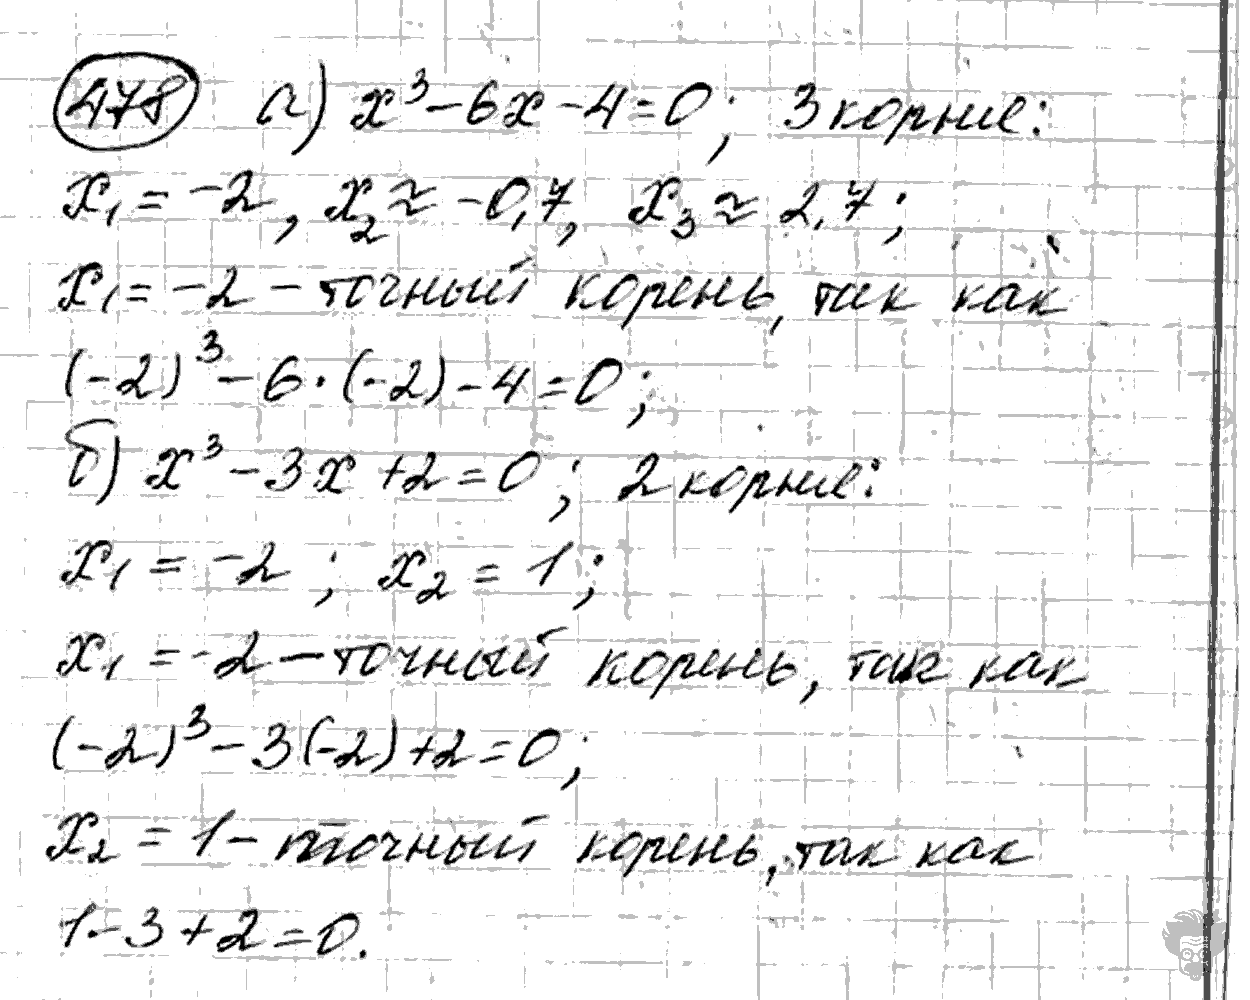 478 а) x³ - 6x - 4 = 0; 3 корние:
x₁ = -2, x₂ ≈ -0,7, x₃ ≈ 2,7;
x₁ = -2 - точный корень, так как
(-2)³ - 6 · (-2) - 4 = 0;
б) x³ - 3x + 2 = 0; 2 корние:
x₁ = -2; x₂ = 1;
x₁ = -2 - точный корень, так как
(-2)³ - 3(-2) + 2 = 0;
x₂ = 1 - точный корень, так как
1 - 3 + 2 = 0.